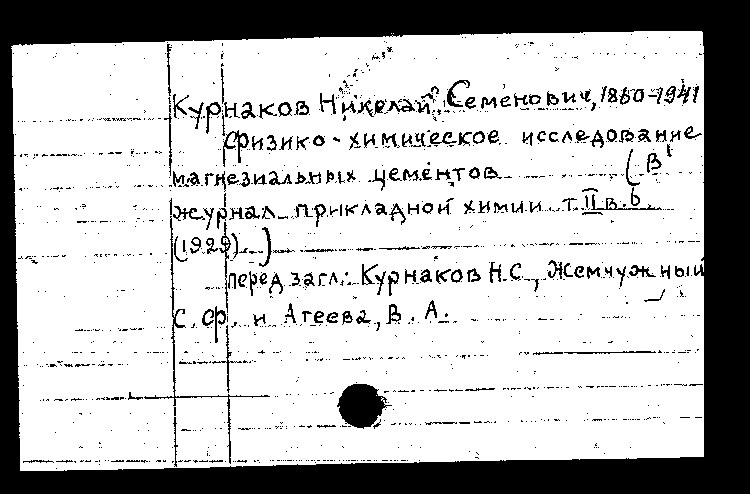 Курнаков Николай Семенович, 1860-1941
Физико-химическое исследование
магнезиальных цементов (В
журнал прикладной химии т. II в. 6.
(1929).)
перед загл.: Курнаков Н.С., Жемчужный
С.Ф. и Агеева, В.А.